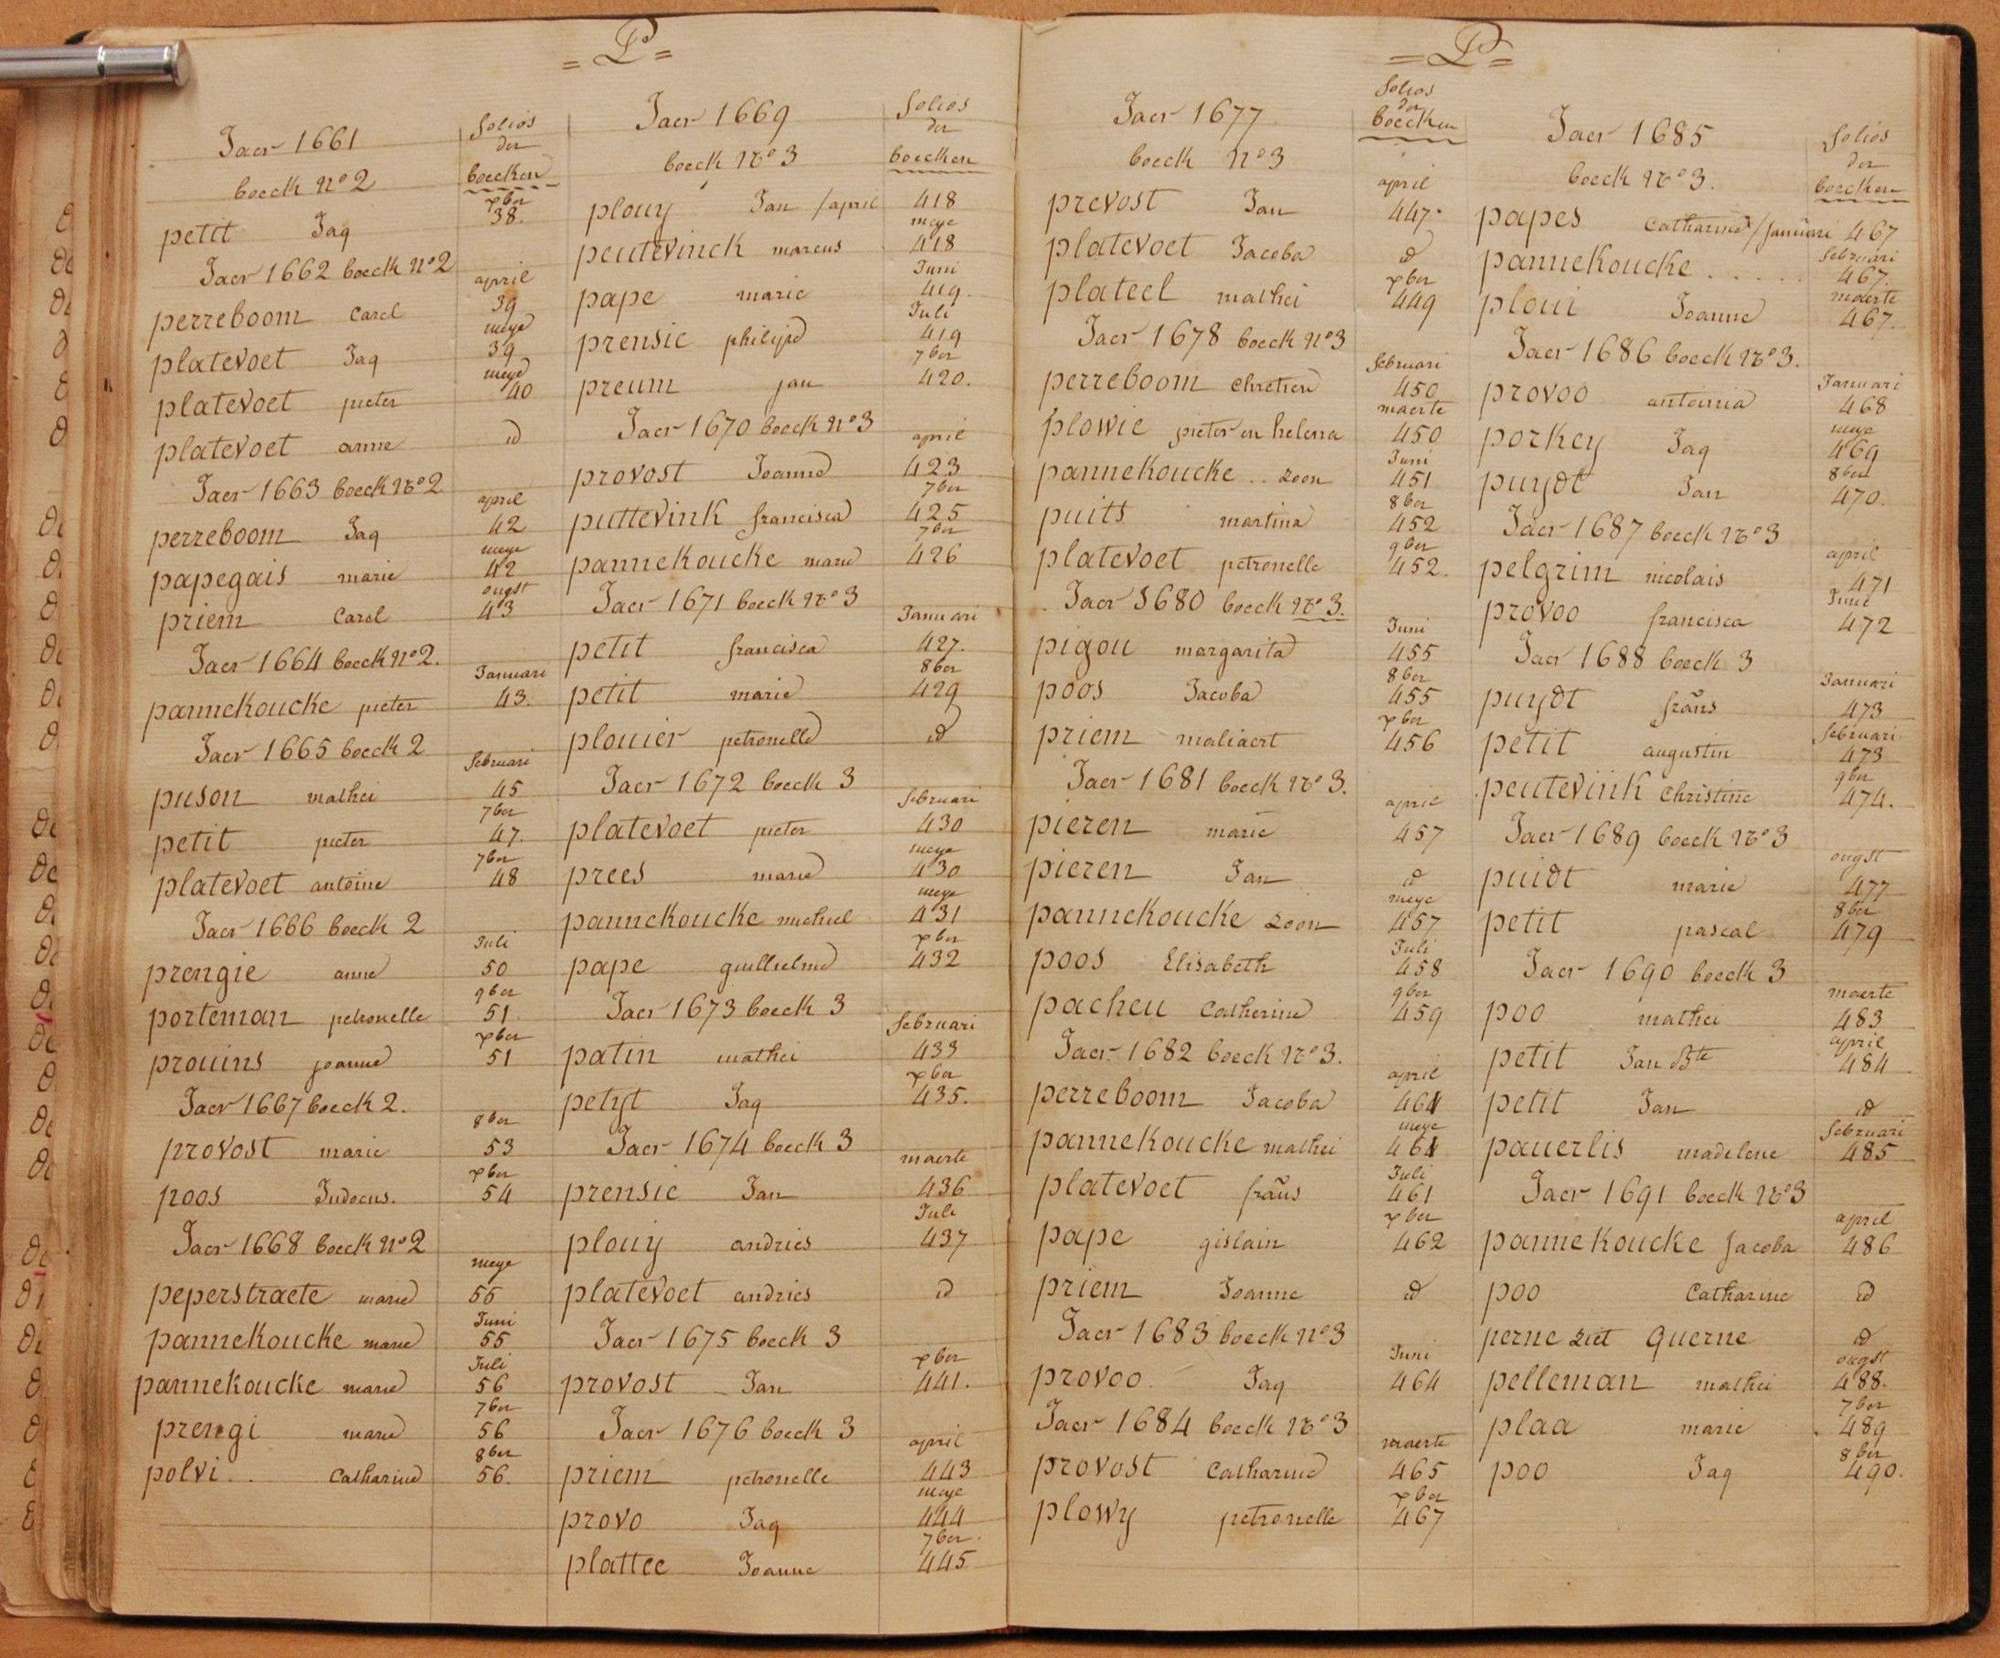 = P =
Jaer 1661
folios
der
boecken
boeck No 2
xber
petit Jaq 38.
Jaer 1662 boeck No 2
april
perreboom Carel 39
meye
platevoet Jaq 39
meye
platevoet pieter 40
platevoet anne id
Jaer 1663 boeck No 2
april
perreboom Jaq 42
meye
papegais marie 42
ougst
priem Carel 43
Jaer 1664 boeck No 2.
Januari
pannekoucke pieter 43.
Jaer 1665 boeck 2
februari
puson mathei 45
7ber
petit pieter 47.
7ber
platevoet antoine 48
Jaer 1666 boeck 2
Juli
prengie anne 50
9ber
porteman petronelle 51
xber
prouins joanne 51
Jaer 1667 boeck 2.
8ber
provost marie 53
xber
poos Judocus. 54
Jaer 1668 boeck No 2
meye
peperstraete marie 55
Juni
pannekoucke marie 55
Juli
pannekoucke marie 56
7ber
prengi marie 56
8ber
polvi .. Catharine 56.
Jaer 1669
folios
der
boecken
boeck No 3
plouy Jan / april 418
meye
peutevinck marcus 418
Juni
pape marie 419.
Juli
prensie philipe 419
7ber
preum jan 420.
Jaer 1670 boeck No 3
april
provost Joanne 423
7ber
puttevink francisca 425
7ber
pannekoucke marie 426
Jaer 1671 boeck No 3
Januari
petit francisca 427.
8ber
petit marie 429
plouier petronelle id
Jaer 1672 boeck 3
februari
platevoet pieter 430
meye
prees marie 430
meye
pannekoucke michiel 431
xber
pape guillielme 432
Jaer 1673 boeck 3
februari
patin mathei 433
xber
petyt Jaq 435.
Jaer 1674 boeck 3
maerte
prensie Jan 436
Juli
plouy andries 437
platevoet andries id
Jaer 1675 boeck 3
xber
provost Jan 441.
Jaer 1676 boeck 3
april
priem petronelle 443
meye
provo Jaq 444
7ber
plattee Joanne 445
= P =
Jaer 1677
folios
der
boecken
boeck No 3
april
prevost Jan 447.
platevoet Jacoba id
xber
plateel mathei 449
Jaer 1678 boeck No 3
februari
perreboom chretien 450
maerte
plowie pieter en helena 450
Juni
pannekoucke .. zoon 451
8ber
puits martina 452
9ber
platevoet petronelle 452.
Jaer 1680 boeck No 3.
Juni
pigou margarita 455
8ber
poos Jacoba 455
xber
priem maliaert 456
Jaer 1681 boeck No 3.
april
pieren marie 457
pieren Jan id
meye
pannekoucke zoon 457
Juli
poos Elisabeth 458
9ber
pacheu Catherine 459
Jaer 1682 boeck No 3.
april
perreboom Jacoba 461
meye
pannekoucke mathei 461
Juli
platevoet frans 461
xber
pape gislain 462
priem Joanne id
Jaer 1683 boeck No 3
Juni
provoo Jaq 464
Jaer 1684 boeck No 3
maerte
provost Catharine 465
xber
plowy petronelle 467
Jaer 1685
folios
der
boecken
boeck No 3.
papes Catharine / januari 467
februari
pannekoucke . . . . . 467.
maerte
ploui Joanne 467.
Jaer 1686 boeck No 3.
Januari
provoo antoinia 468
meye
porkey Jaq 469
8ber
puydt Jan 470.
Jaer 1687 boeck No 3
april
pelgrim nicolais 471
Juni
provoo francisca 472
Jaer 1688 boeck 3
Januari
puydt frans 473
februari
petit augustin 473
9ber
peutevink Christine 474.
Jaer 1689 boeck No 3
ougst
puidt marie 477
8ber
petit pascal 479
Jaer 1690 boeck 3
maerte
poo mathei 483
april
petit Jan Bte 484
petit Jan id
februari
pauerlis madelene 485
Jaer 1691 boeck No 3
april
pannekoucke Jacoba 486
poo Catharine id
perne ziet Querne id
ougst
pelleman mathei 488.
7ber
plaa marie 489
8ber
poo Jaq 490.